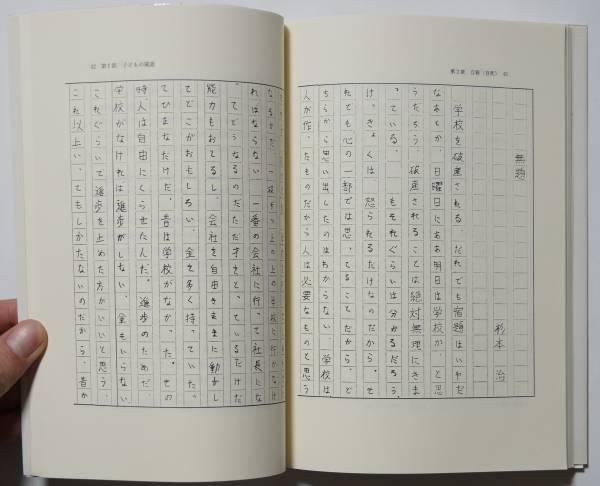 第2章 自殺（自死）
無題
杉本 治
学校を破産される だれでも宿題はいやだ
なあとか、日曜日にああ明日は学校か、と思
うだろう。破産されることは絶対無理にきま
っている。 もそれぐらいは分かるだろう。
け、きょくは 怒られるだけなのだから。そ
れでも心の一部では思ってることだから。ど
ちらから思い出したのはわからない。学校は
人が作ったものだから人は必要なものと思う
第1部 子どもの風景
上の上の学校に行かなけ
ればならない。一番の会社に行って社長にな
ってどうなるのだただ才をとっているだけだ
能力もおとるし、会社を自由きままに動かし
てどこがおもしろい。金を多く持っていた
てひまなだけだ。昔は学校がなかった。その
時人は自由にくらせたんだ。進歩のためだ、
学校がなければ進歩がしない。金もいらない
これぐらいで進歩を止めた方がいいと思う。
これ以上いってもしかたないのだから。昔か